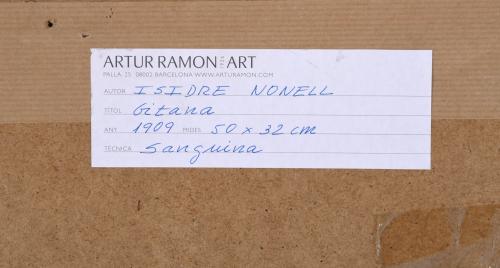 ARTUR RAMON ART
PALLA, 25 08002 BARCELONA WWW.ARTURAMON.COM
AUTOR ISIDRE NONELL
TÍTOL Gitana
ANY 1909 MIDES 50 x 32 cm
TÈCNICA Sanguina